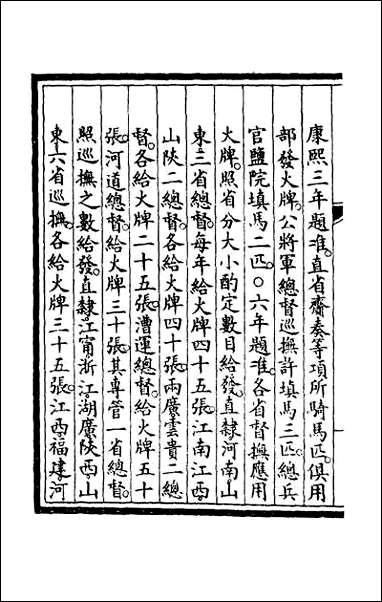 康熙三年題准。直省齎奏等項所騎馬匹。俱用
部發火牌。公將軍總督巡撫許填馬三匹。總兵
官鹽院填馬二匹。○六年題准。各省督撫應用
火牌。照省分大小酌定數目給發。直隸河南山
東三省總督。每年給火牌四十五張。江南江西。
山陝二總督。各給火牌四十張。兩廣雲貴二總
督。各給火牌二十五張。漕運總督。給火牌五十
張。河道總督。給火牌三十張。其專管一省總督。
照巡撫之數給發。直隸。江甯。浙江。湖廣。陝西。山
東。六省巡撫。各給火牌三十五張。江西。福建。河